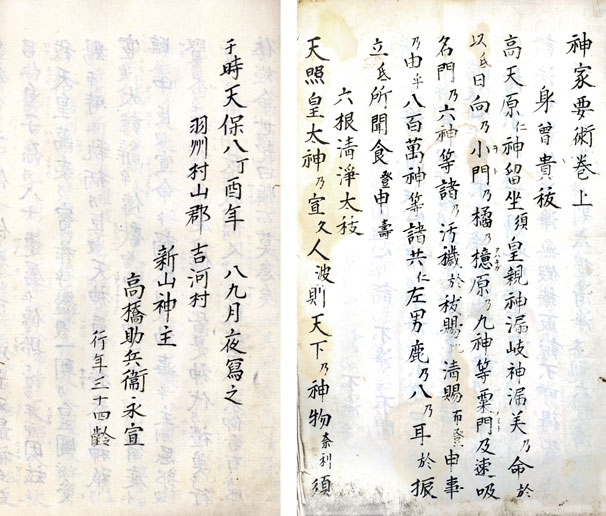 神家要術巻上
身曽貴祓
高天原仁神留坐須皇親神漏岐神漏美乃命於
以氐日向乃小門乃橘乃檍原乃九神等粟門及速吸
名門乃六神等諸乃汚穢於祓賜比清賜布登申事
乃由乎八百萬神等諸共仁左男鹿乃八乃耳於振
立氐所聞食登申壽
六根清淨太祓
天照皇太神乃宣久人波則天下乃神物奈利須
于時天保八丁酉年 八九月夜寫之
羽州村山郡 吉河村
新山神主
高橋助兵衞 永宣
行年三十四齡